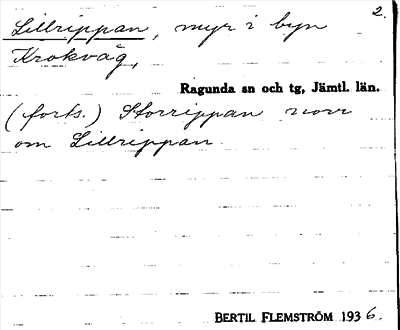 2.
Lillrippan, myr i byn
Krokvåg,
Ragunda sn och tg, Jämtl. län.
(forts.) Storrippan norr
om Lillrippan.
BERTIL FLEMSTRÖM 1936.